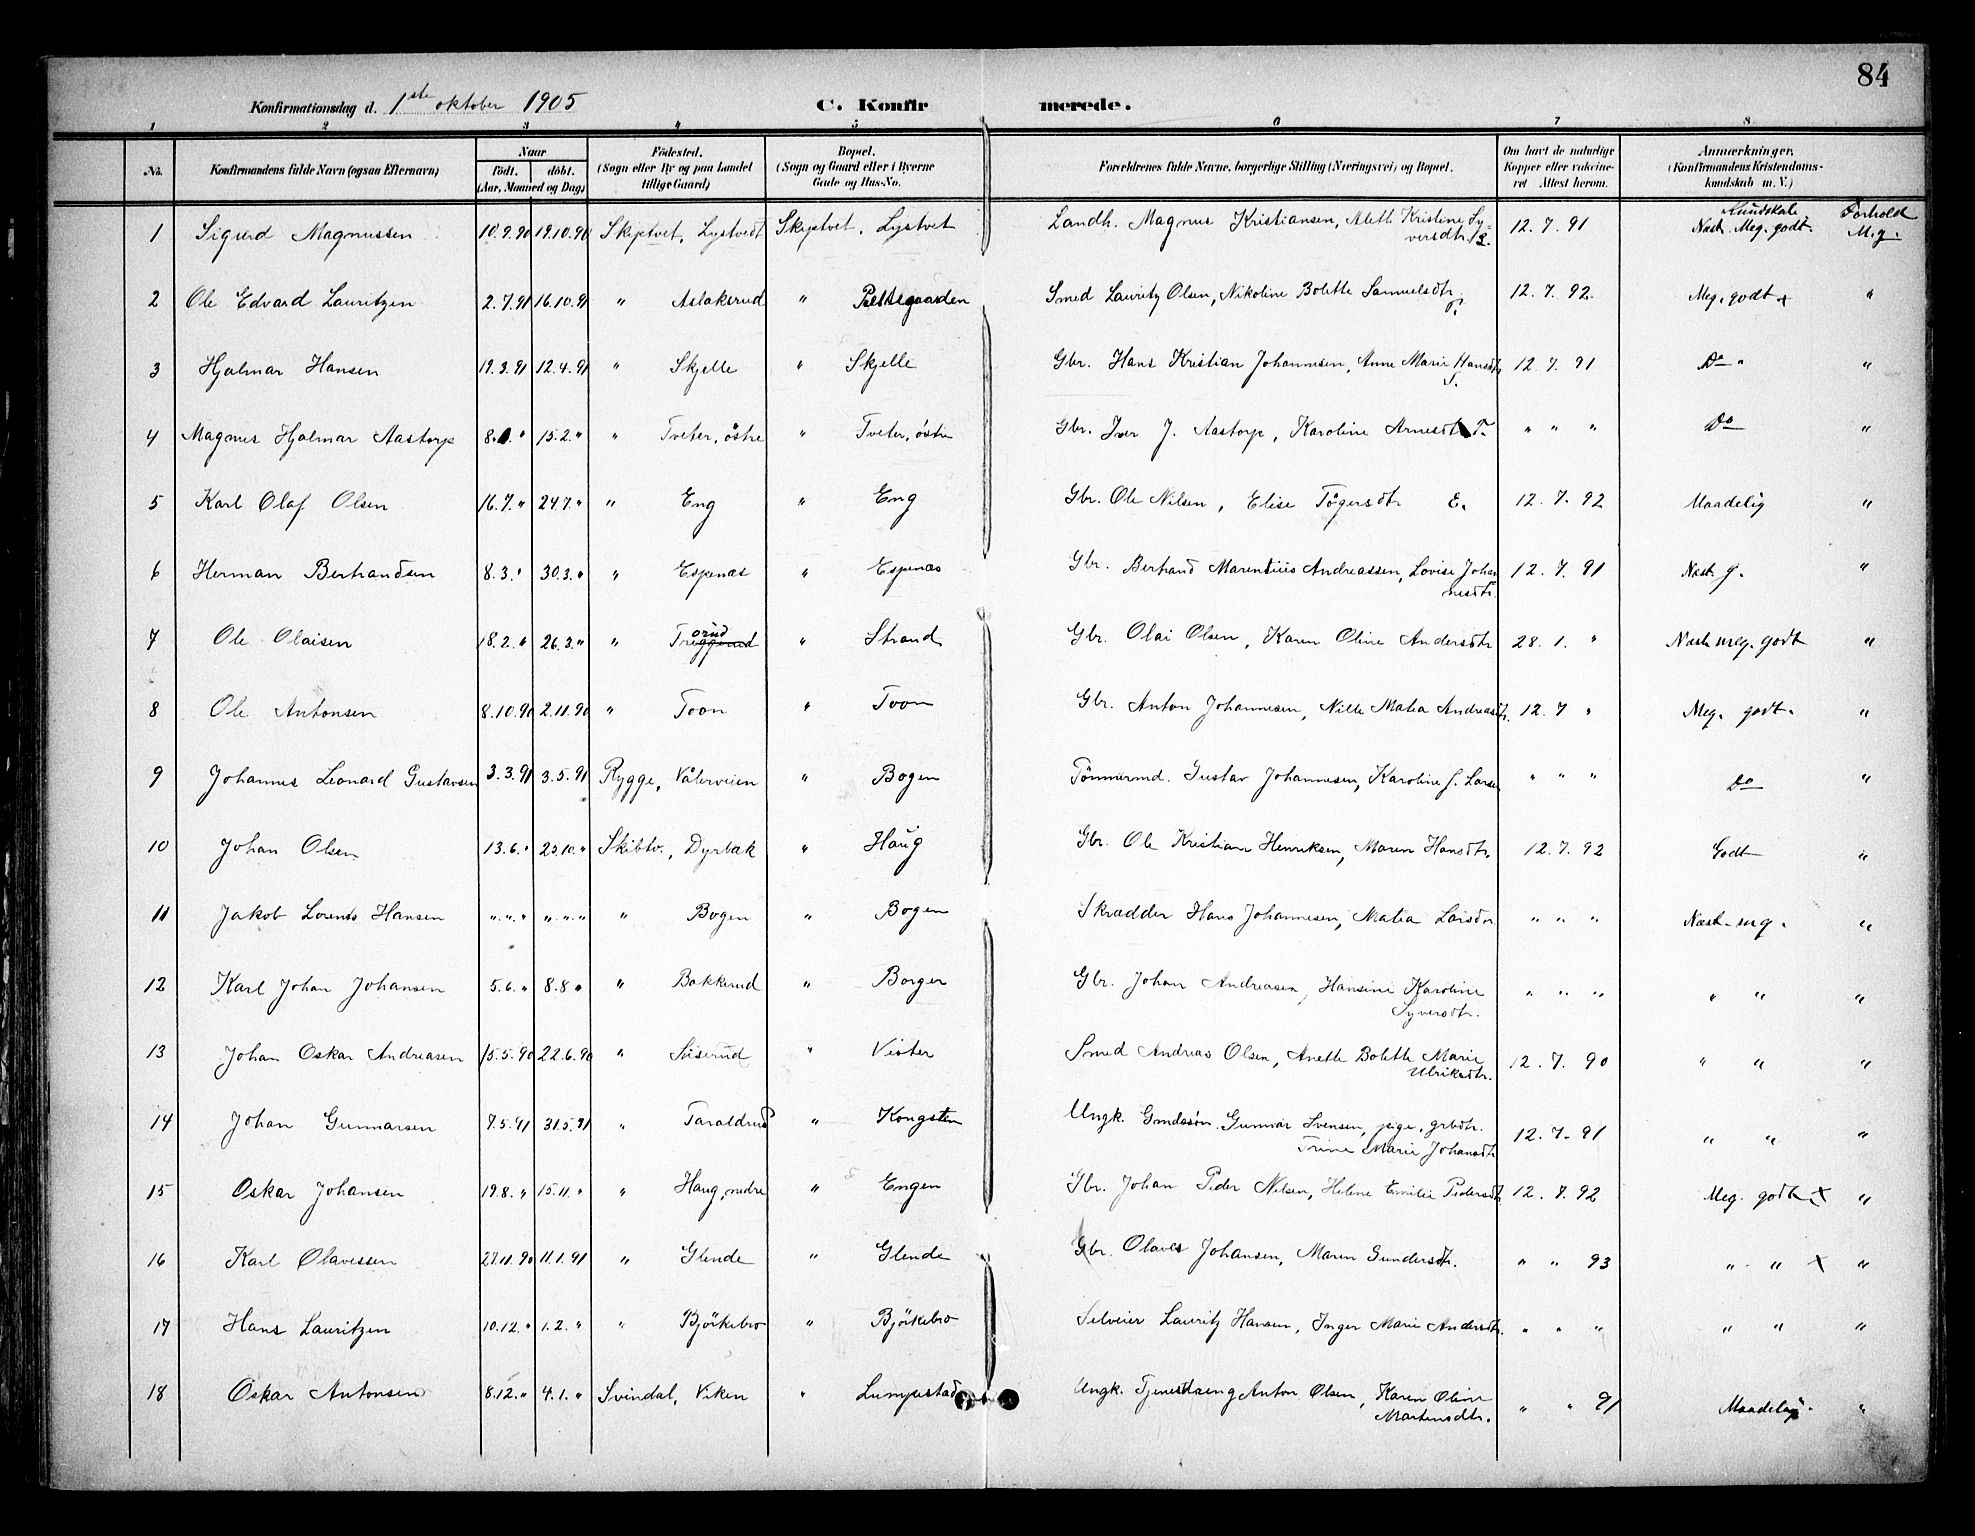 84
Konfirmationsdag d. 1ste oktober 1905 C. Konfirmerede.
1 2 3 4 5 6 7 8
No. Konfirmandens fulde Navn (ogsaa Efternavn) Naar født. døbt. (Aar, Maaned og Dag) Fødested. (Sogn eller By og paa Landet tillige Gaard) Bopæl. (Sogn og Gaard eller i Byerne Gade og Hus-No. Forældrenes fulde Navne, borgerlige Stilling (Næringsvei) og Bopæl. Om havt de naturlige Kopper eller vakcineret Attest herom. Anmærkninger. (Konfirmandens Kristendomskundskab m. V.)
Kundskab Forhold
1 Sigurd Magnussen 10.9.90 19.10.90 Skiptvet, Lystvedt Skiptvet, Lystvet Landh. Magnus Kristiansen, Alette Kristine Syversdtr. 12.7.91 Næst. Meg. godt. M.g.
2 Ole Edvard Lauritzen 2.7.91 16.10.91 " Aslaksrud " Smed Lauritz Olsen, Nikoline Bolette Samuelsdtr. 12.7.92. Meg. godt x "
3 Hjalmar Hansen 19.3.91 12.4.91 " Skjelle " Skjelle Gbr. Hans Kristian Johannesen, Anne Marie Hansdtr. 12.7.91 Do " "
4 Magnus Hjalmar Aastorp 8. " 15.2." " Tveter, östre " Tveter, östre Gbr. Iver J. Aastorp, Karoline Arnesdtr T. " " " Do "
5 Karl Olaf Olsen 16.7." 24.7." " Eng " Eng Gbr. Ole Nilsen, Elise Tögersdtr E. 12.7.92 Maadelig "
6 Herman Bertrandsen 8.3." 30.3." " Espenæs " Espenæs Gbr. Bertrand Marentius Andreassen, Lovise Johannesdtr. 12.7.91 Næst. g. "
7 Ole Olaisen 18.2." 26.3." " orud " Strand Gbr. Olai Olsen, Karen Oline Andersdtr 28.1." Næst meg. godt "
8 Ole Antonsen 8.10.90 2.11.90 " Toon " Toon Gbr. Anton Johannesen, Nille Matea Andreasdtr. 12.7 " Meg. godt. "
9 Johannes Leonard Gustavsen 3.3.91 3.5.91 Rygge, Vålerveien " Bogen Tömmermd. Gustav Johannesen, Karoline J. Larsen " " " Do "
10 Johan Olsen 13.6." 25.10." Skibtv., Dyrbak " Haug Gbr. Ole Kristian Henriksen, Maren Hansdtr. 12.7.92 Godt "
11 Jakob Lorents Hansen " " " " " " " Bogen " Bogen Skrædder Hans Johannesen, Matea Larsdtr " " " Næst. mg. "
12 Karl Johan Johansen 5.6." 8.8 " " Bakkerud " Borger Gbr. Johan Andreasen, Hansine Karoline Syversdtr. " " " " " "
13 Johan Oskar Andreasen 15.5.90 22.6.90 " Siserud " Vister Smed Andreas Olsen, Anette Bolette Marie Ulriksdtr. 12.7.90 " " "
14 Johan Gunnarsen 7.5.91 31.5.91 " Taraldrud " Kongsten Ungk. Gmdssön. Gunnar Svensen, pige, grbdtr. Trine Marie Johansdtr 12.7.91 " " "
15 Oskar Johansen 19.8." 15.11." " Haug, nedre " Engen Gbr. Johan Peder Nilsen, Helene Emilie Pedersdtr. 12.7.92 Meg. godt x "
16 Karl Olavessen 27.11.90 11.1.91 " Glende " Glende Gbr. Olaves Johansen, Maren Gundersdtr. " " 93 " " x "
17 Hans Lauritzen 10.12." 1.2." " Björkebro " Björkebro Selveier Lauritz Hansen, Inger Marie Andersdtr. " " " " " "
18 Oskar Antonsen 8.12." 4.1." Svindal, Viken " Lumpestad Ungk. Tjenestdreng Anton Olsen, Karen Oline Martinsdtr. " " 91 Maadelig. "